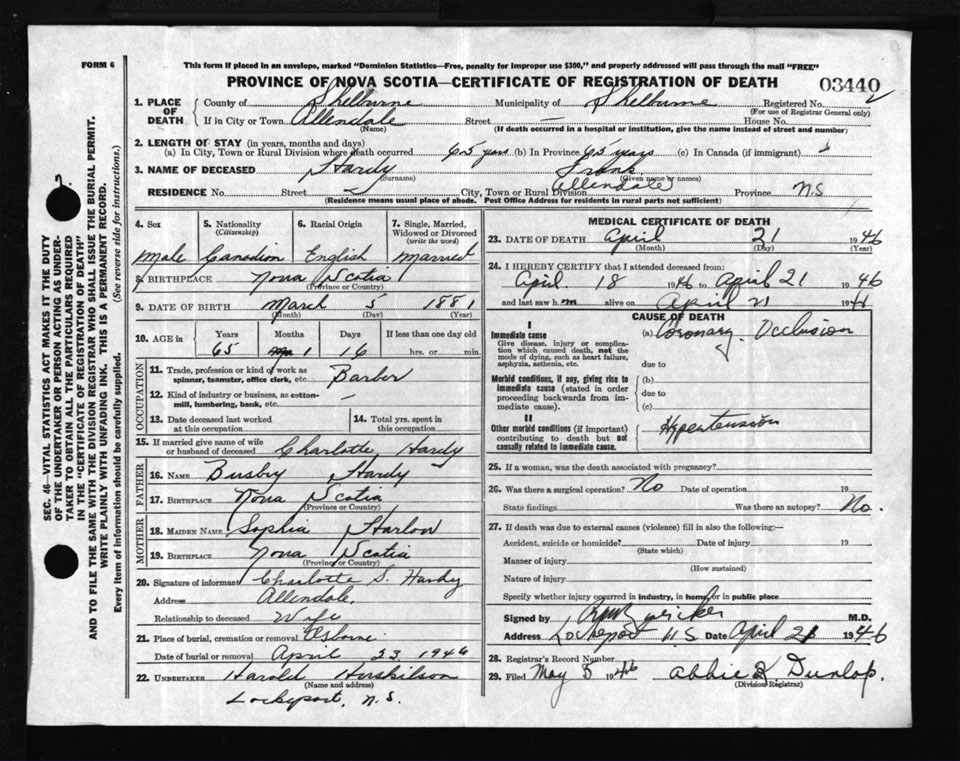 FORM 6
This form if placed in an envelope, marked "Dominion Statistics—Free, penalty for improper use $300," and properly addressed will pass through the mail "FREE"
PROVINCE OF NOVA SCOTIA—CERTIFICATE OF REGISTRATION OF DEATH
03440
1. PLACE OF DEATH
County of Shelburne Municipality of Shelburne Registered No. 2
(For use of Registrar General only)
If in City or Town Allendale Street — House No.
(Name) (If death occurred in a hospital or institution, give the name instead of street and number)
2. LENGTH OF STAY (in years, months and days)
(a) In City, Town or Rural Division where death occurred 65 years (b) In Province 65 years (c) In Canada (if immigrant)
3. NAME OF DECEASED Hardy Frank
(Surname) (Given name or names)
RESIDENCE No. Street City, Town or Rural Division Allendale Province N.S
(Residence means usual place of abode. Post Office Address for residents in rural parts not sufficient)
4. Sex
Male
5. Nationality
(Citizenship)
Canadian
6. Racial Origin
English
7. Single, Married, Widowed or Divorced
(write the word)
Married
8. BIRTHPLACE Nova Scotia
(Province or Country)
9. DATE OF BIRTH March 5 1881
(Month) (Day) (Year)
10. AGE in
Years 65
Months 1
Days 16
If less than one day old
hrs. or min.
OCCUPATION
11. Trade, profession or kind of work as spinner, teamster, office clerk, etc. Barber
12. Kind of industry or business, as cotton-mill, lumbering, bank, etc. —
13. Date deceased last worked at this occupation
14. Total yrs. spent in this occupation
15. If married give name of wife or husband of deceased Charlotte Hardy
FATHER
16. NAME Busby Hardy
17. BIRTHPLACE Nova Scotia
(Province or Country)
MOTHER
18. MAIDEN NAME Sophia Harlow
19. BIRTHPLACE Nova Scotia
(Province or Country)
20. Signature of informant Charlotte S. Hardy
Address Allendale,
Relationship to deceased Wife
21. Place of burial, cremation or removal Osborne
Date of burial or removal April 23 1946
22. UNDERTAKER Harold Huskilson
(Name and address)
Lockeport, N.S.
MEDICAL CERTIFICATE OF DEATH
23. DATE OF DEATH April 21 1946
(Month) (Day) (Year)
24. I HEREBY CERTIFY that I attended deceased from:
April 18 1946 to April 21 1946
and last saw him alive on April 21 194
CAUSE OF DEATH
I
Immediate cause
Give disease, injury or complication which caused death, not the mode of dying, such as heart failure, asphyxia, asthenia, etc.
(a) Coronary Occlusion
due to
Morbid conditions, if any, giving rise to immediate cause (stated in order proceeding backwards from immediate cause).
(b)
due to
(c)
II
Other morbid conditions (if important) contributing to death but not causally related to immediate cause.
Hypertension
25. If a woman, was the death associated with pregnancy?
26. Was there a surgical operation? No Date of operation 19
State findings Was there an autopsy? No.
27. If death was due to external causes (violence) fill in also the following:—
Accident, suicide or homicide? Date of injury 19
(State which)
Manner of injury
(How sustained)
Nature of injury
Specify whether injury occurred in industry, in home, or in public place
Signed by M.D.
Address Lockeport N.S Date April 21 1946
28. Registrar's Record Number
29. Filed May 5 1946 Abbie K. Dunlop.
(Division Registrar)
SEC. 46—VITAL STATISTICS ACT MAKES IT THE DUTY
OF THE UNDERTAKER OR PERSON ACTING AS UNDER-
TAKER TO OBTAIN ALL THE PARTICULARS REQUIRED
IN THE "CERTIFICATE OF REGISTRATION OF DEATH"
AND TO FILE THE SAME WITH THE DIVISION REGISTRAR WHO SHALL ISSUE THE BURIAL PERMIT.
WRITE PLAINLY WITH UNFADING INK. THIS IS A PERMANENT RECORD.
Every item of information should be carefully supplied. (See reverse side for instructions.)